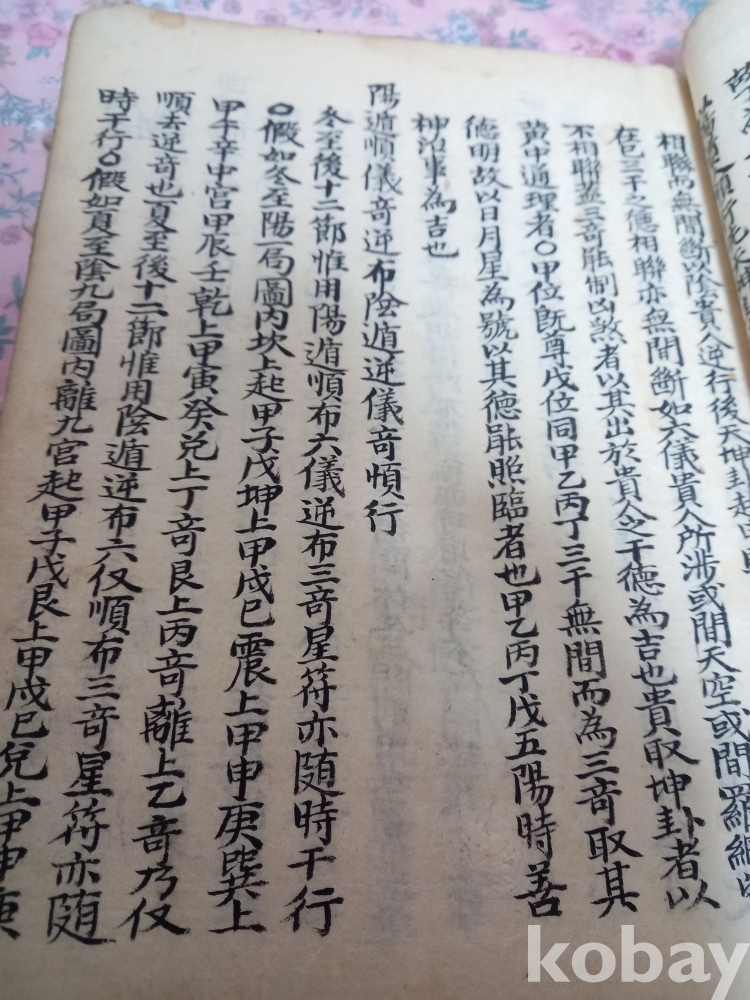 相聯而無間斷以陰貴人逆行後天坤卦起
在巳三干之德相聯亦無間斷如六儀貴人所涉或間天空或間羅網
不相聯蓋三竒能制凶煞者以其出於貴人之干德為吉也貴取坤卦者以
黃中通理者〇甲位既尊戊位同甲乙丙丁三干無間而為三竒取其
德明故以日月星為號以其德能照臨者也甲乙丙丁戊五陽時善
神治事為吉也
陽遁順儀竒逆布陰遁逆儀竒順行
冬至後十二節惟用陽遁順布六儀逆布三竒星符亦随時干行
〇假如冬至陽一局圖內坎上起甲子戊坤上甲戌巳震上甲申庚巽上
甲午辛中宮甲辰壬乾上甲寅癸兌上丁竒艮上丙竒離上乙竒乃仅
順去逆竒也夏至後十二節惟用陰遁逆布六仅順布三竒星符亦随
時干行〇假如夏至陰九局圖內離九宮起甲子戊艮上甲戌巳兌上甲申庚
kobay